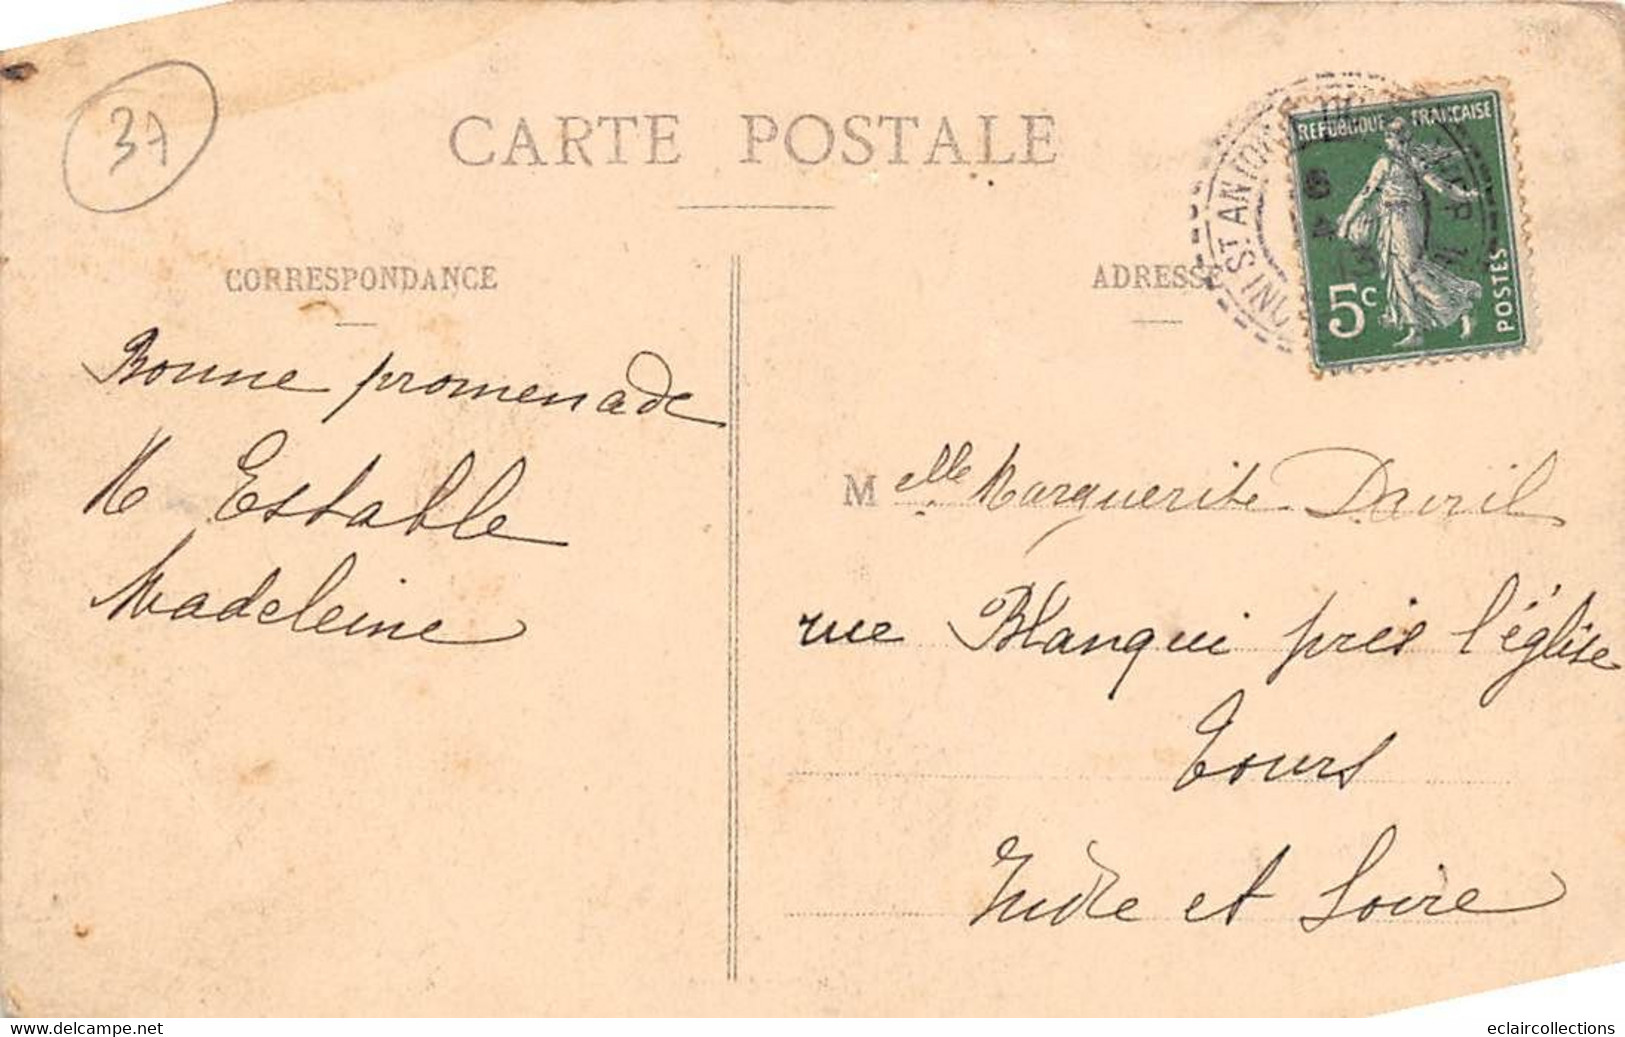 37
CARTE POSTALE
REPUBLIQUE FRANÇAISE
5c
POSTES
ST ANTOINE DU
INDRE
CORRESPONDANCE
ADRESSE
Bonne promenade
M Estable
Madeleine
Melle Marguerite Davril
rue Blanqui près l'église
Tours
Indre et Loire
www.delcampe.net
eclaircollections